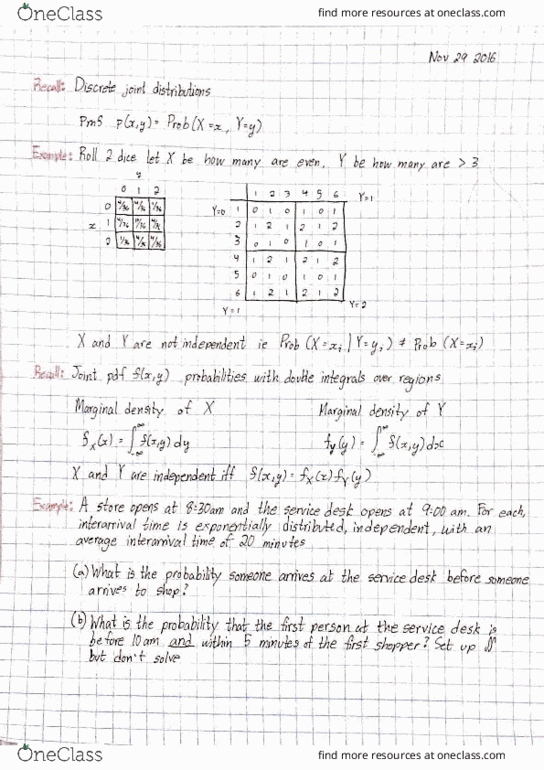 OneClass find more resources at oneclass.com
Nov 29 2016
Recall: Discrete joint distributions
Pmf p(x,y) = Prob(X=x, Y=y)
Example: Roll 2 dice let X be how many are even, Y be how many are > 3
y
0 1 2
0
x 1
2
1 2 3 4 5 6 Y=1
Y=0 1 0 1 0 1 0 1
2 1 2 1 2 1 2
3 0 1 0 1 0 1
4 1 2 1 2 1 2
5 0 1 0 1 0 1
6 1 2 1 2 1 2
Y=1 Y=2
X and Y are not independent ie Prob(X=xi | Y=yj) ≠ Prob(X=xi)
Recall: Joint pdf f(x,y) probabilities with double integrals over regions
Marginal density of X Marginal density of Y
fx(x) = ∫-∞^∞ f(x,y) dy fy(y) = ∫-∞^∞ f(x,y) dx
X and Y are independent iff f(x,y) = fx(x) fy(y)
Example: A store opens at 8:30am and the service desk opens at 9:00 am. For each,
interarrival time is exponentially distributed, independent, with an
average interarrival time of 20 minutes
(a) What is the probability someone arrives at the service desk before someone
arrives to shop?
(b) What is the probability that the first person at the service desk is
before 10am and within 5 minutes of the first shopper? Set up ∬
but don't solve
OneClass find more resources at oneclass.com